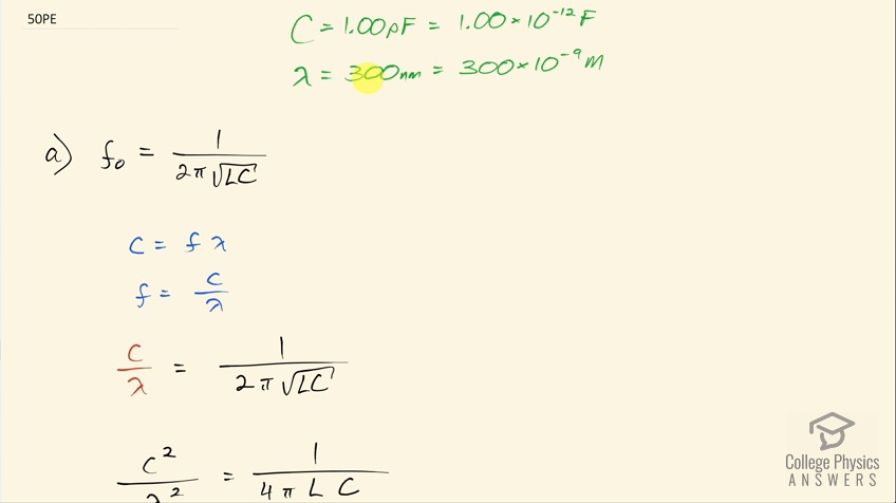 50PE
C = 1.00pF = 1.00×10⁻¹² F
λ = 300nm = 300×10⁻⁹ m
a) f₀ = 1/(2π√LC)
c = fλ
f = c/λ
c/λ = 1/(2π√LC)
c²/λ² = 1/(4π L C)
College Physics
ANSWERS